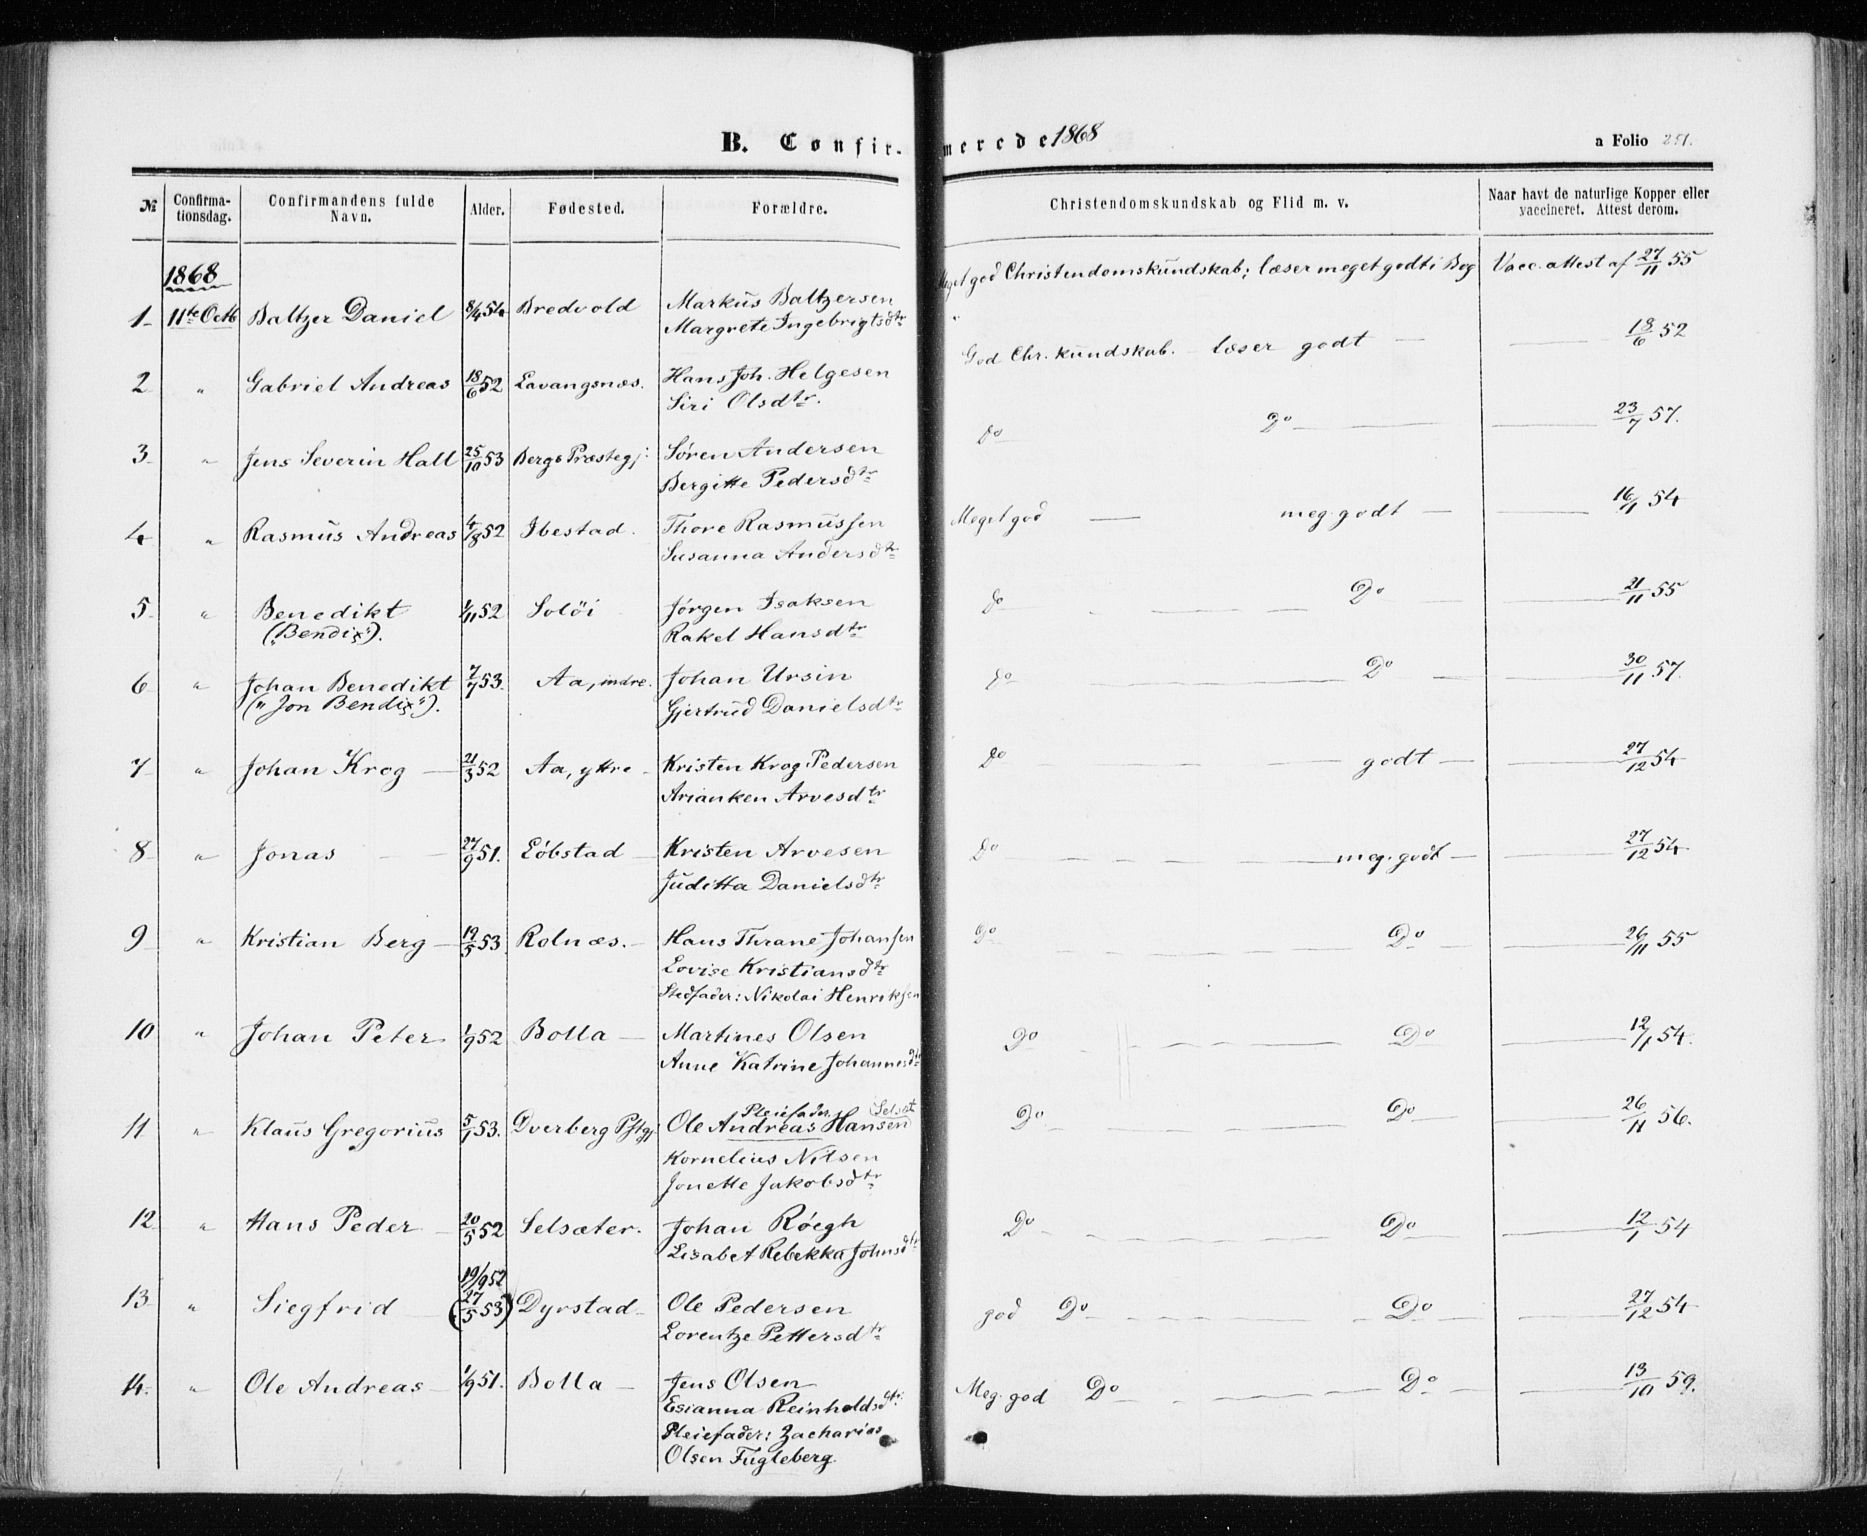 B. Confirmerede 1868
a Folio 251.
№ Confirmationsdag. Confirmandens fulde Navn. Alder. Fødested. Forældre. Christendomskundskab og Flid m. v. Naar havt de naturlige Kopper eller vaccineret. Attest derom.
1868
1 11te Octb Baltzer Daniel 8/4 54 Bredvold Markus Baltzersen Meget god Christendomskundskab; læser meget godt i Bog Vacc. attest af 27/11 55
Margrete Ingebrigtsdtr
2 " Gabriel Andreas 18/6 52 Lavangsnæs. Hans Joh. Helgesen God Chr. kundskab. – læser godt — 18/6 52
Siri Olsdtr.
3 " Jens Severin Hall 25/10 53 Bergs Præstegj: Søren Andersen do Do — 23/7 57.
Bergitte Pedersdtr
4 " Rasmus Andreas 4/8 52 Ibestad. Thore Rasmussen Meget god — meg. godt — 16/1 54
Susanna Andersdtr
5 " Benedikt 1/11 52 Soløi Jørgen Isaksen do Do — 21/11 55
("Bendix"). Rakel Hansdtr
6 " Johan Benedikt 7/7 53. Aa, indre. Johan Ursin do Do — 30/11 57.
("Jon Bendix"). Gjertrud Danielsdtr
7 " Johan Krog — 21/3 52 Aa, yttre – Kristen Krog Pedersen do godt — 27/12 54
Arianken Arvesdtr
8 " Jonas — 27/9 51. Løbstad — Kristen Arvesen Do meg. godt — 27/12 54
Juditta Danielsdtr
9 " Kristian Berg — 19/5 53 Rolnæs. — Hans Thrane Johansen Do Do — 26/11 55
Lovise Kristiansdtr
Stedfader: Nikolai Henriksen
10 " Johan Peter 1/9 52 Bolla — Martines Olsen Do Do — 12/1 54.
Anne Katrine Johannesdtr
Pleiefader.
11 " Klaus Gregorius 5/1 53. Dverberg Pstgj Ole Andreas Hansen Do Do — 26/11 56.
Kornelius Nilsen
Jonette Jakobsdtr
12 " Hans Peder — 20/5 52 Selsæter. Johan Røegh Do Do — 12/1 54
Lisabet Rebekka Johnsdtr
19/9 52
13 " Siegfrid — (27/5 53) Dyrstad — Ole Pedersen god Do Do — 27/12 54
Lorentze Pettersdtr
14. " Ole Andreas — 1/9 51. Bolla — Jens Olsen Meg. god Do Do — 13/10 59.
Esianna Reinholdsdtr.
Pleiefader: Zacharias
Olsen Fugleberg.